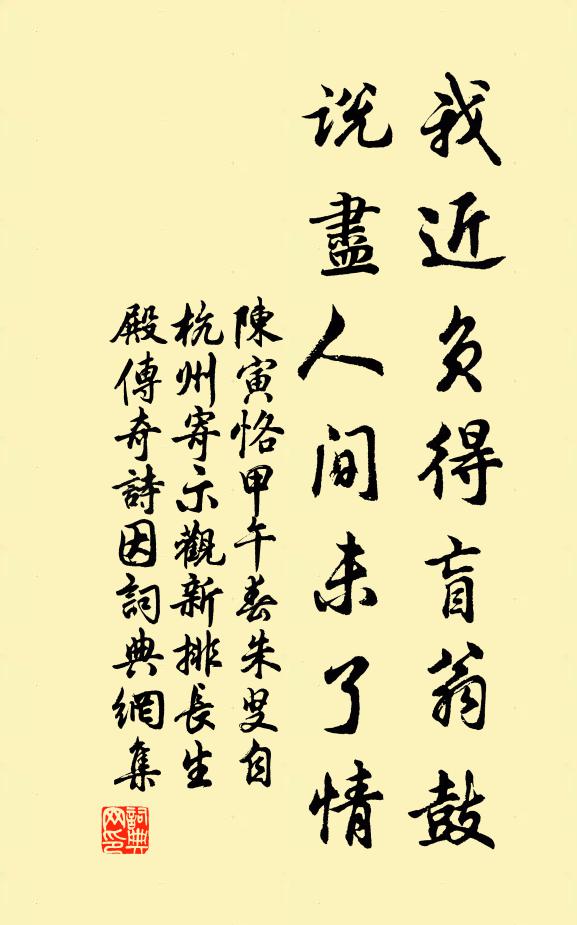 我近負得盲翁鼓
說盡人间未了情
陳寅恪甲午春朱叟自
杭州寄示觀新排長生
殿傳奇詩因詞典網集
詞典
网印